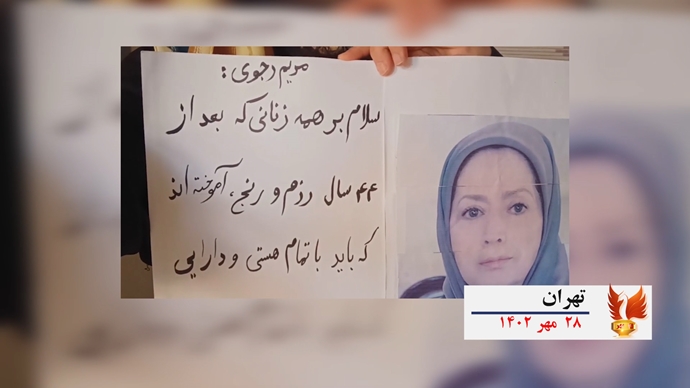 مریم رجوی:
سلام بر همه زنانی که بعد از
۴۴ سال رزم و رنج، آموخته اند
که باید با تمام هستی و دارایی
تهران
۲۸ مهر ۱۴۰۲